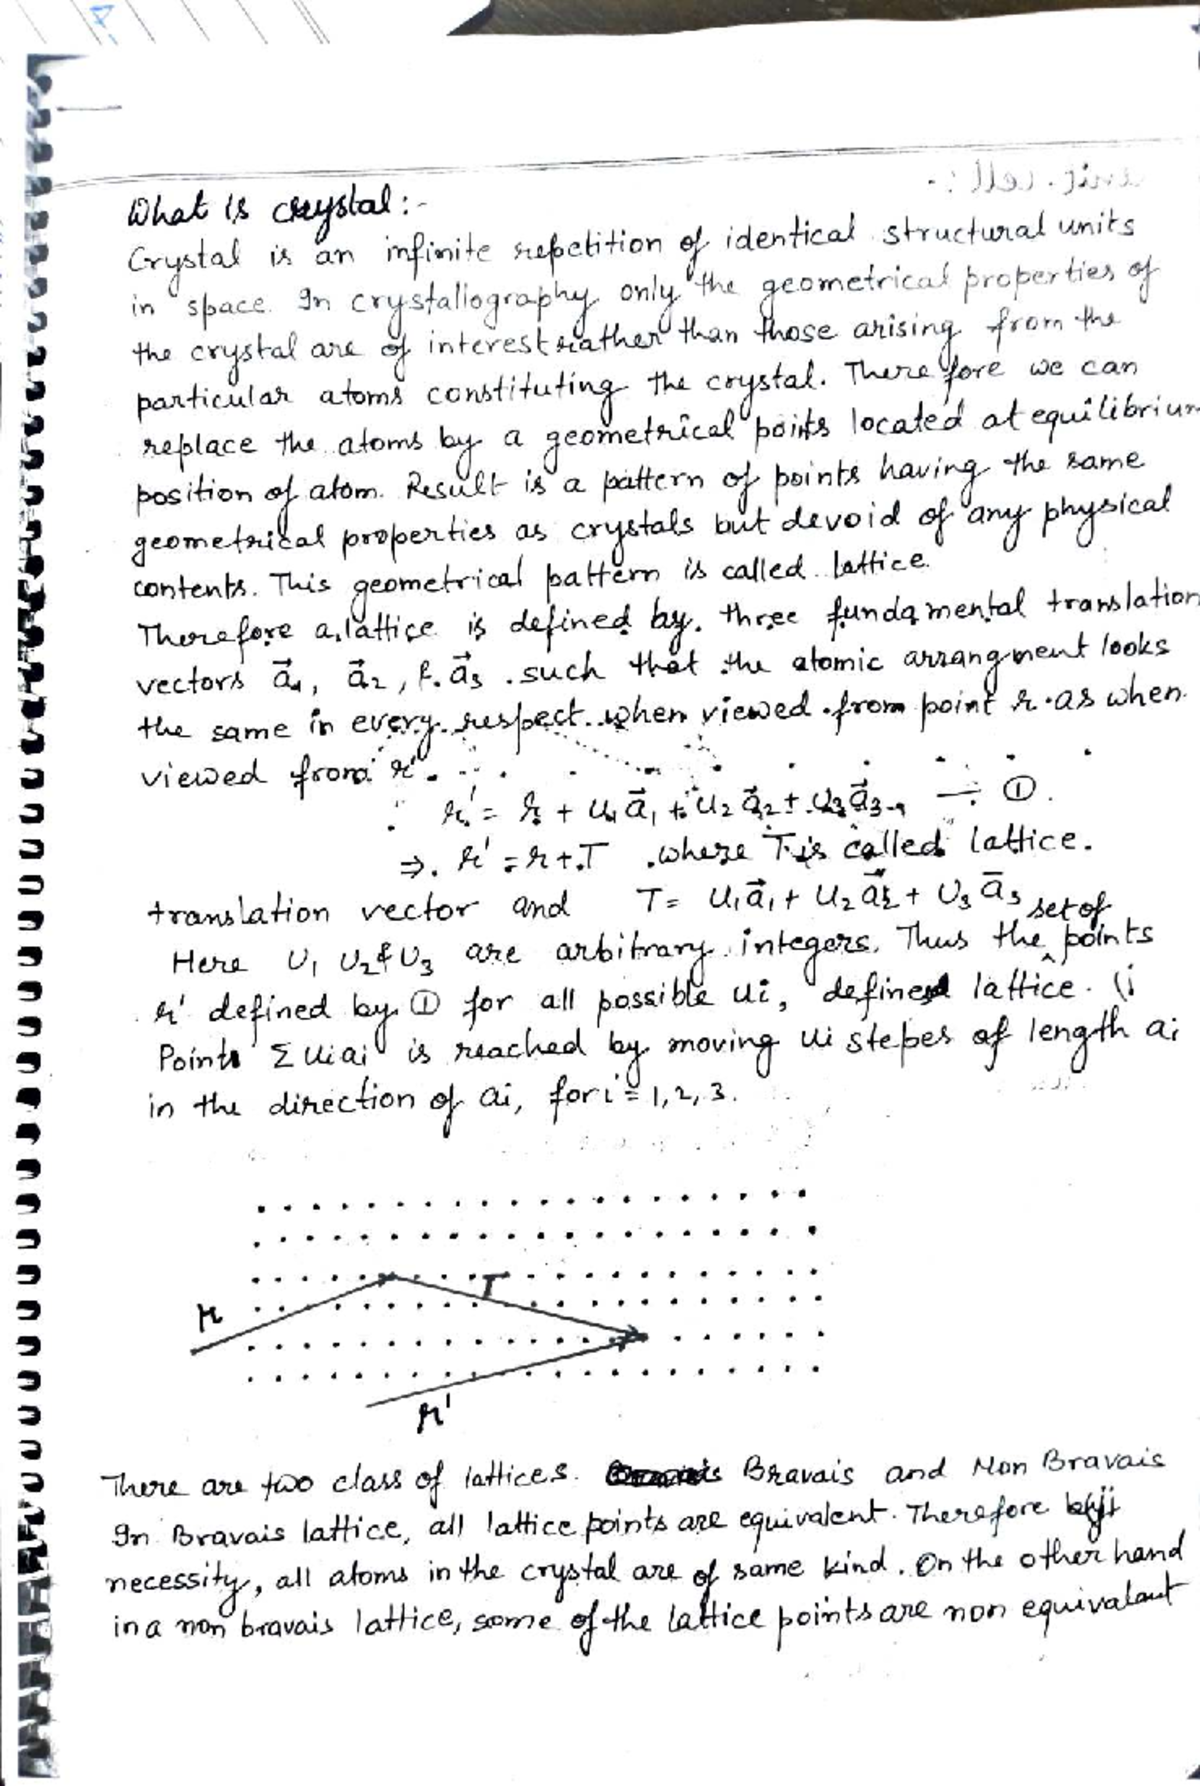 What is crystal :-
Crystal is an infinite repetition of identical structural units
in space. In crystallography only the geometrical properties of
the crystal are of interest rather than those arising from the
particular atoms constituting the crystal. Therefore we can
replace the atoms by a geometrical points located at equilibrium
position of atom. Result is a pattern of points having the same
geometrical properties as crystals but devoid of any physical
contents. This geometrical pattern is called lattice.
Therefore a lattice is defined by three fundamental translation
vectors a⃗₁, a⃗₂, & a⃗₃ such that the atomic arrangment looks
the same in every respect when viewed from point r as when
viewed from r'.
r' = r + u₁a⃗₁ + u₂a⃗₂ + u₃a⃗₃ — ①.
⇒ r' = r + T where T is called lattice.
translation vector and T = u₁a⃗₁ + u₂a⃗₂ + u₃a⃗₃
Here u₁ u₂ & u₃ are arbitrary integers. Thus the set of points
r' defined by ① for all possible ui, defined lattice. (i
Points Σ uiai is reached by moving ui stepes of length ai
in the direction of ai, for i = 1, 2, 3.
T
r
r'
There are two class of lattices. Bravais and Non Bravais
In Bravais lattice, all lattice points are equivalent. Therefore by
necessity, all atoms in the crystal are of same kind. On the other hand
in a non bravais lattice, some of the lattice points are non equivalant